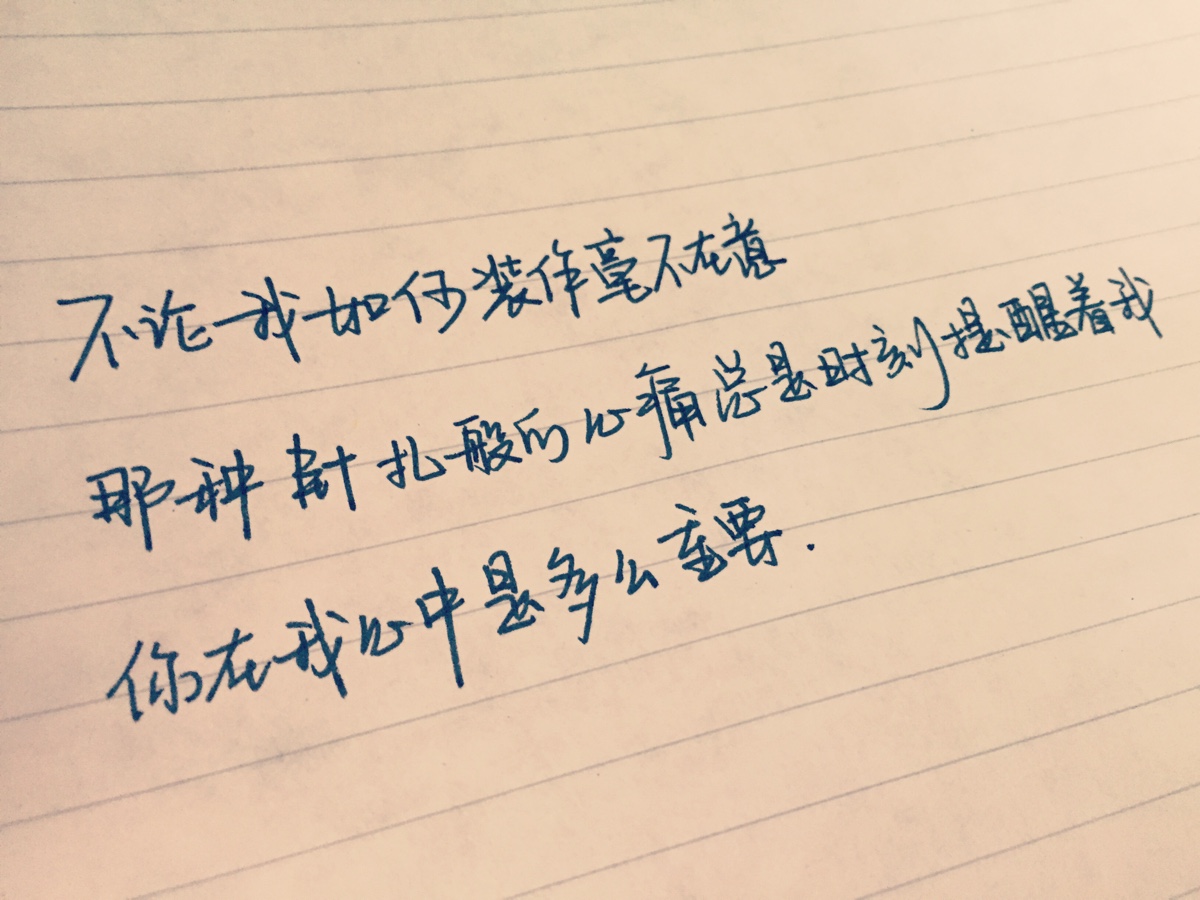 不论我如何装作毫不在意
那种针扎般的心痛总是时刻提醒着我
你在我心中是多么重要.